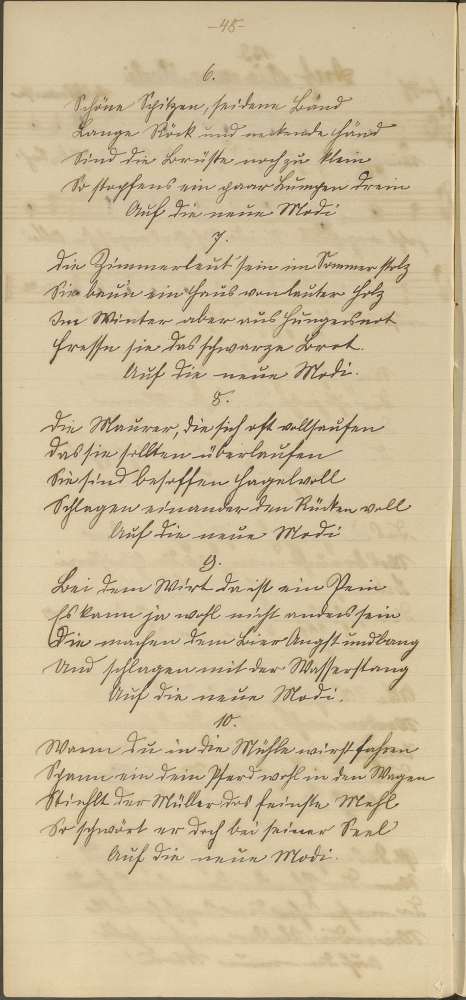 -48-
6.
Schöne Spitzen, seidene Band
Lange Röck und neckende Händ
Sind die Brüste noch zu klein
So stopfens ein paar Lumpen drein
Auf die neue Modi
7.
Die Zimmerleut sein im Sommer stolz
Sie baun ein Haus von lauter Holz
Im Winter aber aus Hungersnot
Fressn sie das schwarze Brot.
Auf die neue Modi.
8.
Die Maurer, die sich oft vollsaufen
Das sie sollten überlaufen
Sie sind besoffen hagelvoll
Schlagen einander den Rücken voll
Auf die neue Modi
9.
Bei dem Wirt da ist ein Pein
Es kann ja wohl nicht anders sein
Die machen dem Bier Angst und bang
Und schlagen mit der Wasserstang
Auf die neue Modi.
10.
Wann du in die Mühle wirst fahren
Spann ein dein Pferd wohl in den Wagen
Stiehlt der Müller das feinste Mehl
So schwört er doch bei seiner Seel
Auf die neue Modi.